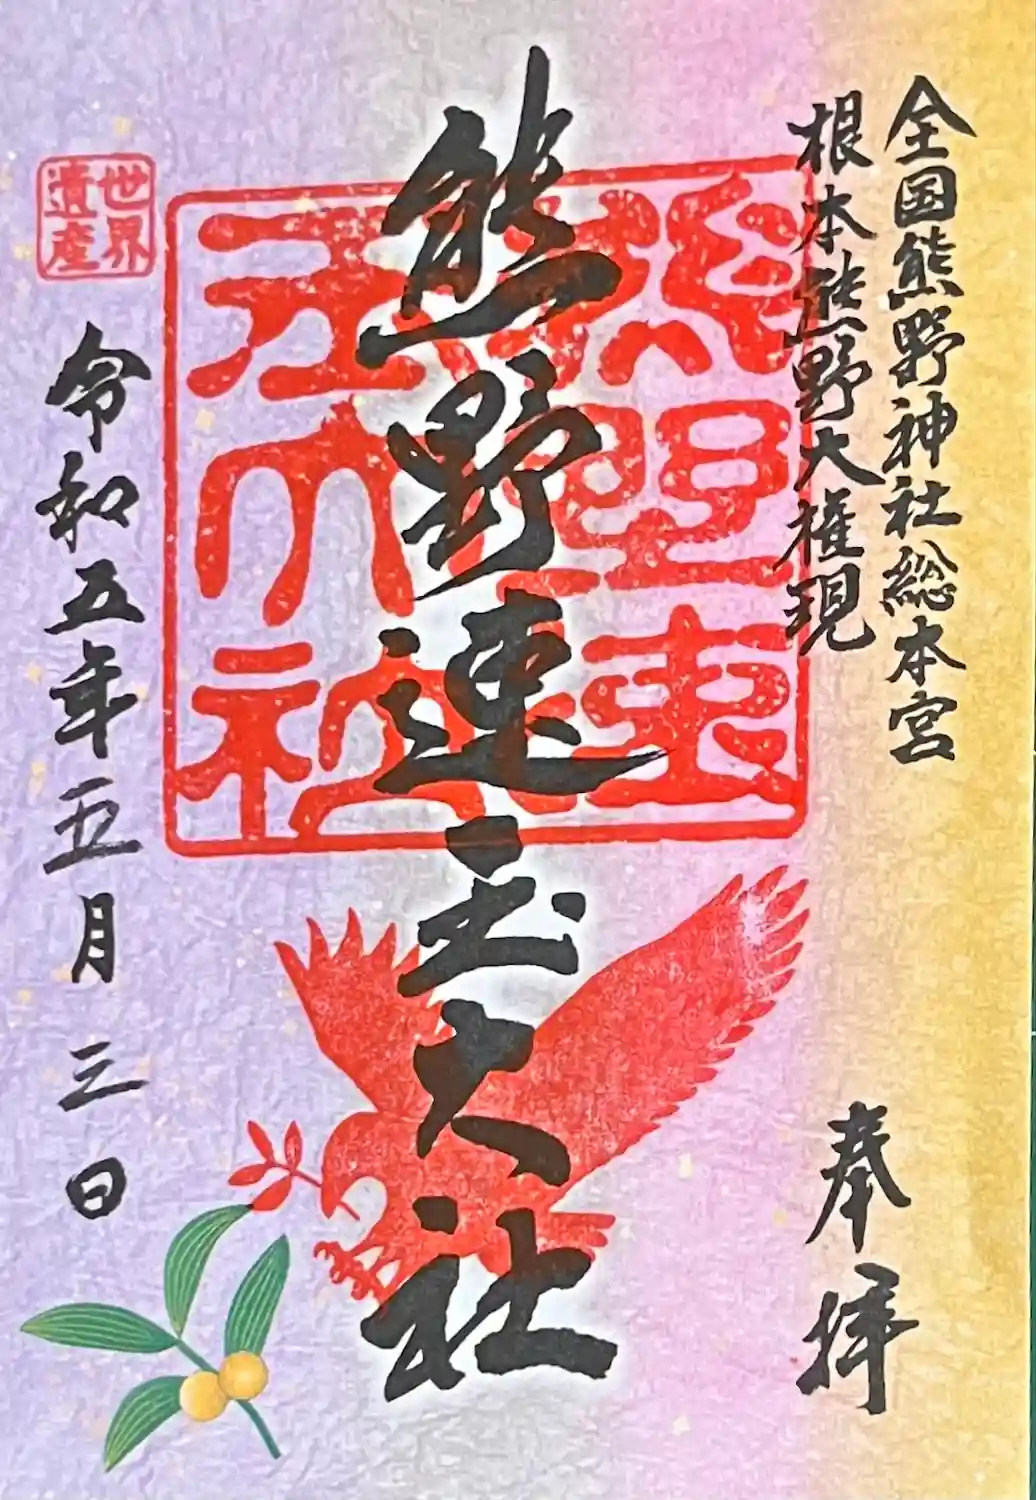 全国熊野神社総本宮
根本熊野大権現
奉拝
熊野速玉大社
熊野速玉大社
令和五年五月三日
世界
遺産